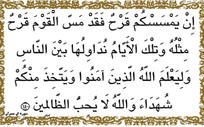 إِن يَمْسَسْكُمْ قَرْحٌ فَقَدْ مَسَّ الْقَوْمَ قَرْحٌ
مِّثْلُهُ وَتِلْكَ الْأَيَّامُ نُدَاوِلُهَا بَيْنَ النَّاسِ
وَلِيَعْلَمَ اللَّهُ الَّذِينَ آمَنُوا وَيَتَّخِذَ مِنكُمْ
شُهَدَاءَ وَاللَّهُ لَا يُحِبُّ الظَّالِمِينَ